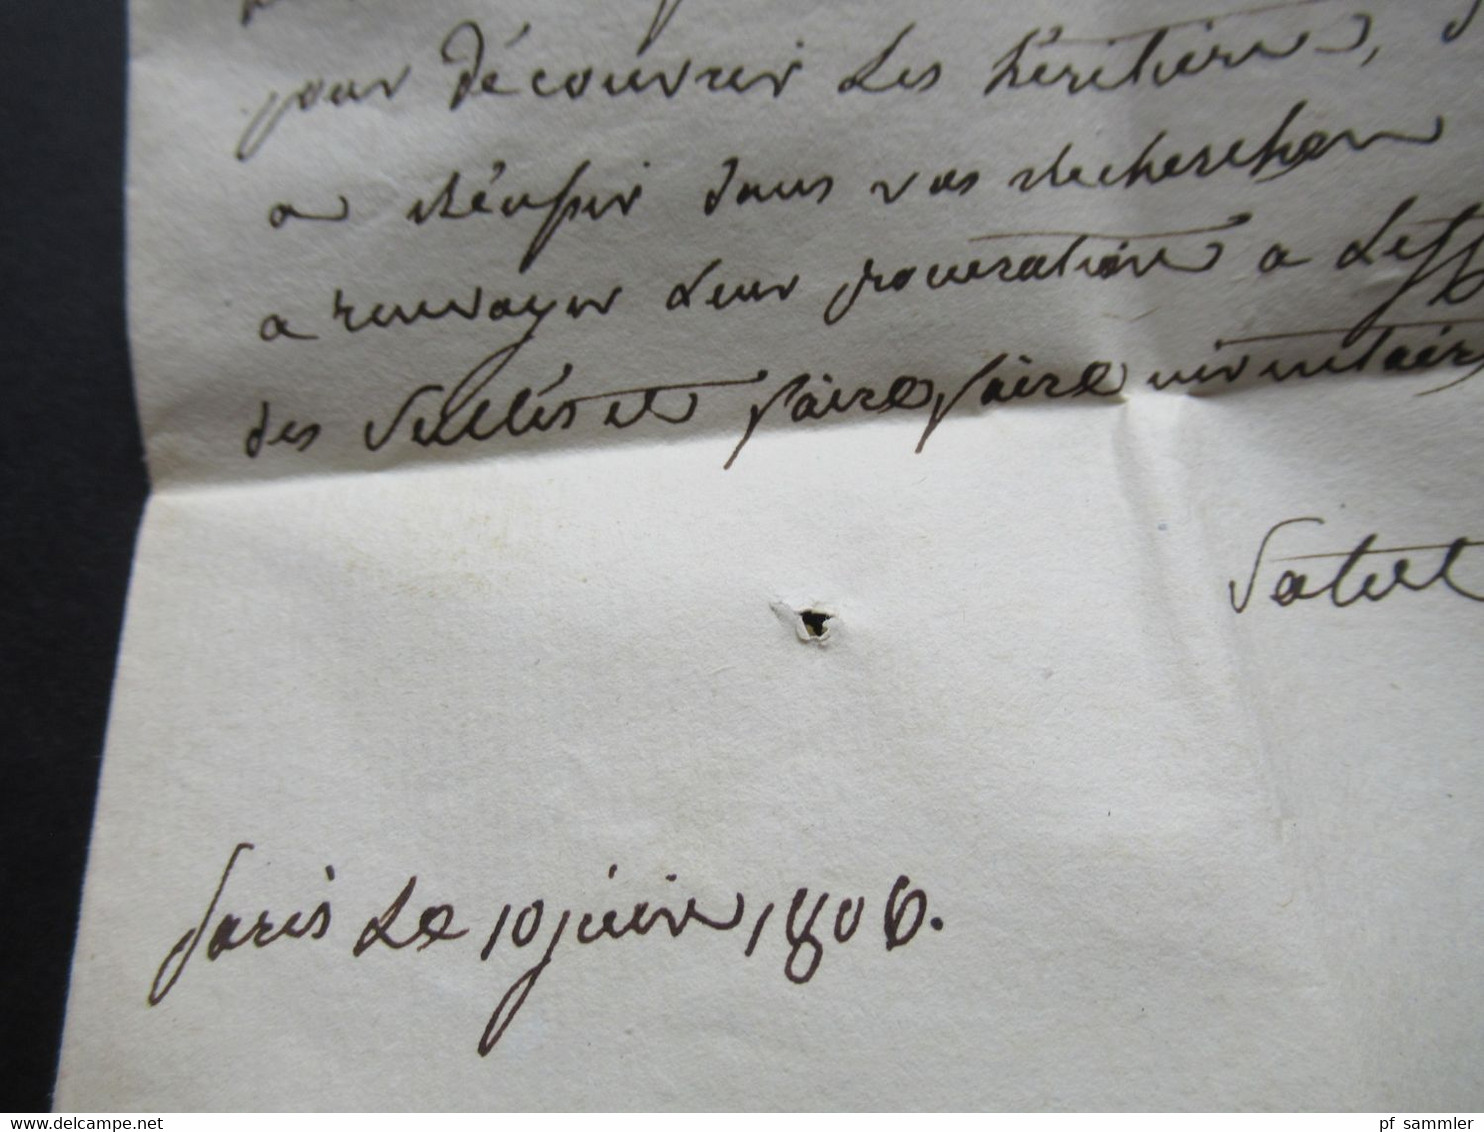 pour découvrir les héritiers,
a réussir dans vos recherches
a renvoyer leur procuration a
des scellés et faire faire inventaire
Salut
Paris le 10 juin 1806.
www.delcampe.net
pf_sammler